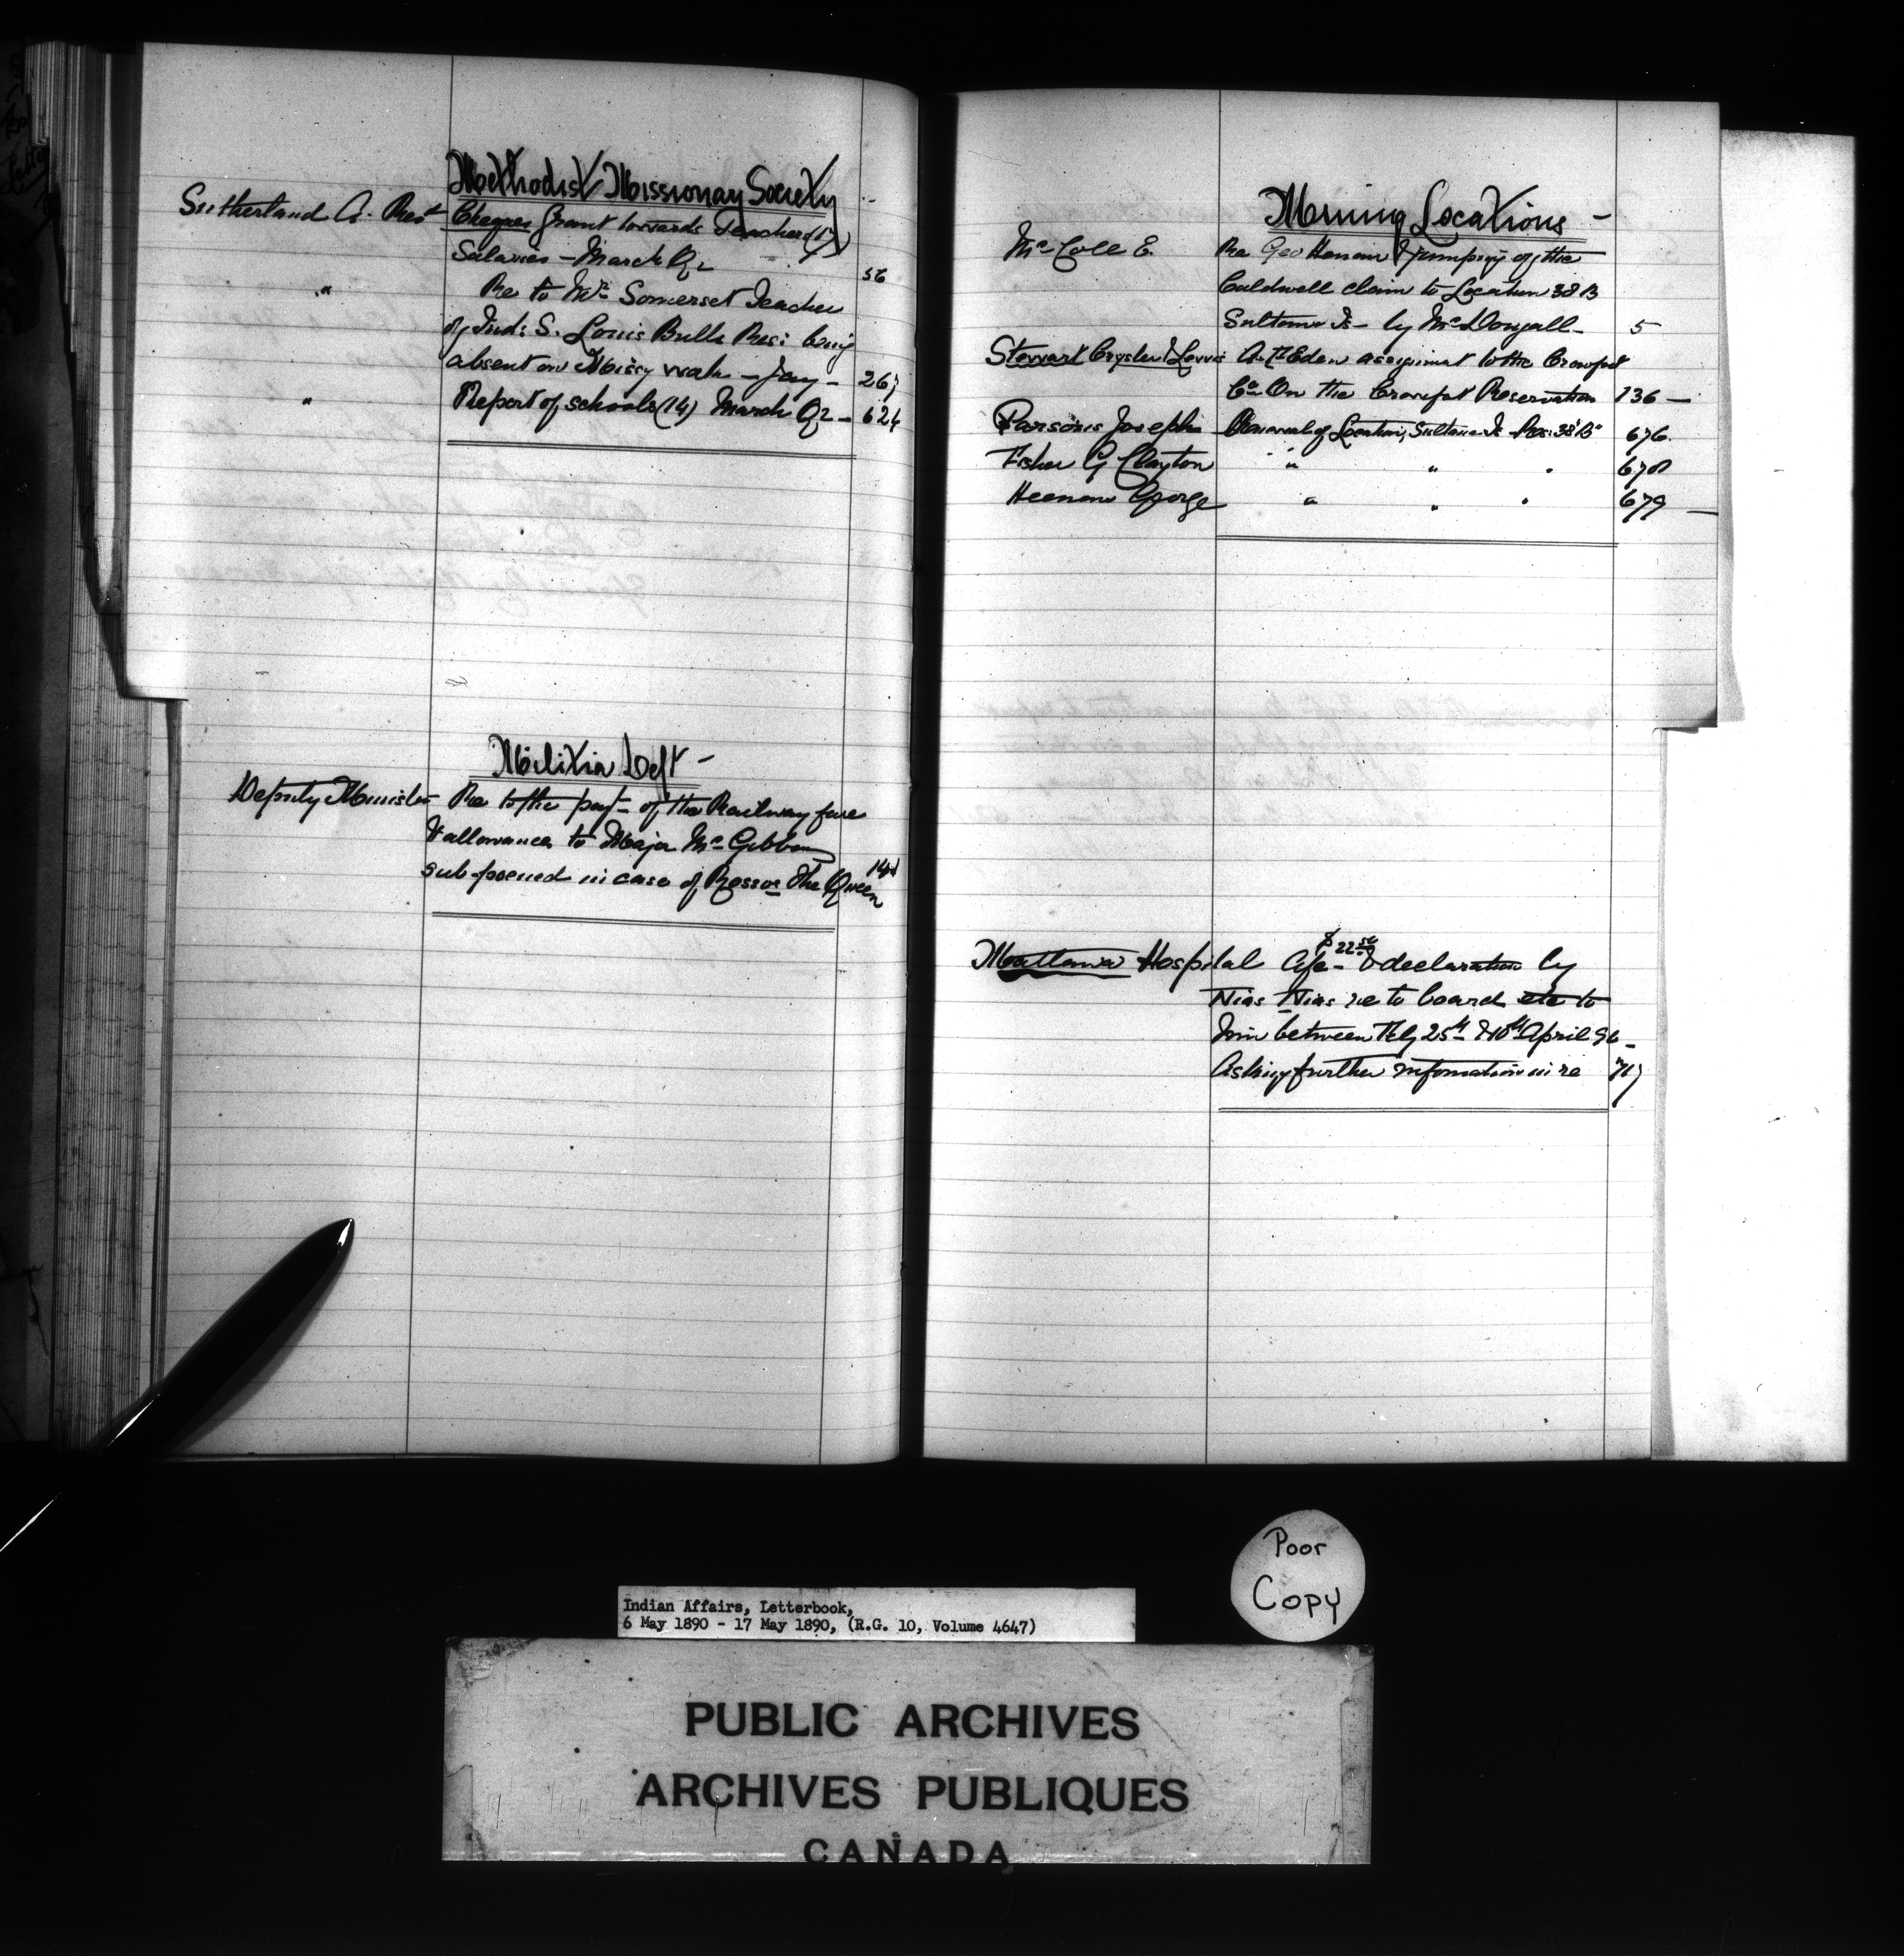 Methodist Missionary Society
Sutherland A. Revd Cheques Grant towards Teachers (17)
Salaries - March Qr 56
" Re to Mr. Somerset Teacher
of Ind: S. Louis Bulls Res: being
absent on Missy work - Jany - 267
" Report of schools (14) March Qr - 624
Militia Dept -
Deputy Minister Re to the payt of the Railway fare
& allowances to Major McGibbon
subpoened in case of Ross vs The Queen 141
Mining Locations -
McColl E. Re Geo Heenan & jumping of the
Caldwell claim to Location 38 B
Sultana Is - by McDougall - 5
Stewart Chrysler & Lewis Eden assignmt to the Crowfoot
Co On the Crowfoot Reservation 136 -
Parsons Joseph of Location, Sultana Is 38 "B" 676
Fisher G Clayton " " " 678
Heenan George " " " 679 -
Mattawa Hospital a/c - $22.50 & declaration by
re to board etc to
between Feby 25th & 10th April 90 -
Asking further information in re 717
Poor
Copy
Indian Affairs, Letterbook,
6 May 1890 - 17 May 1890, (R.G. 10, Volume 4647)
PUBLIC ARCHIVES
ARCHIVES PUBLIQUES
CANADA